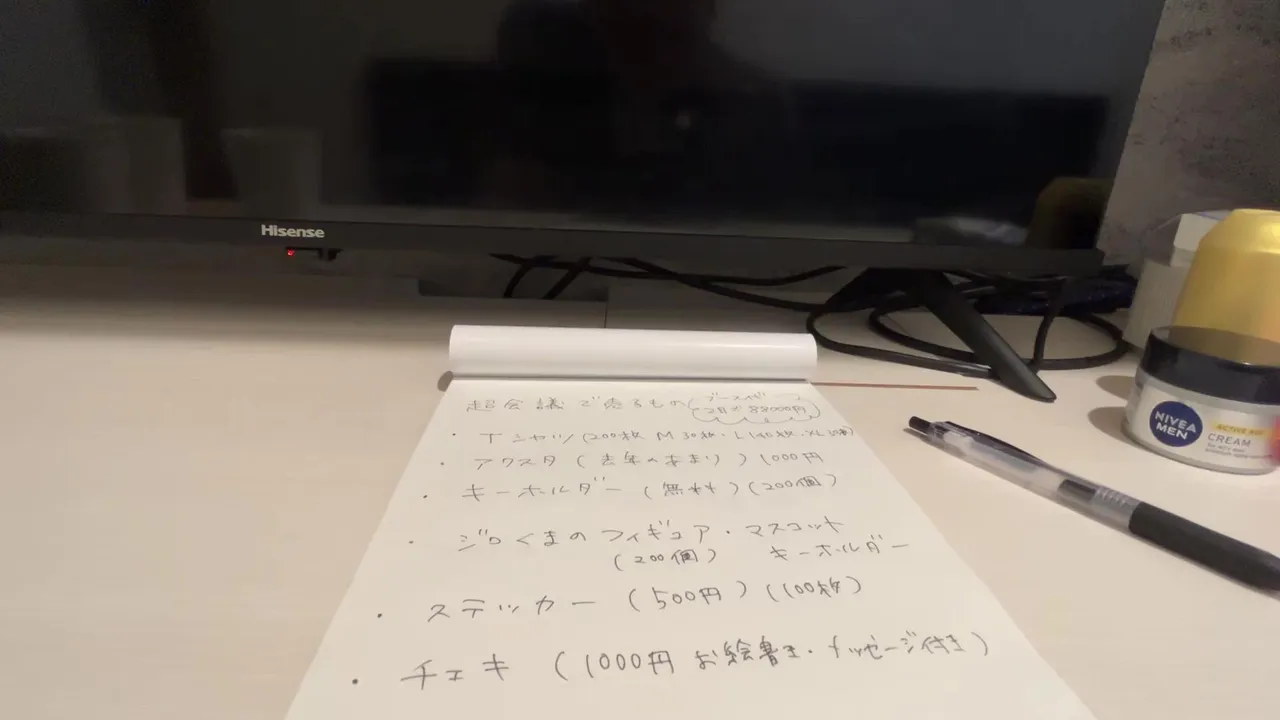 Hisense
超会議で売るもの ブース代
2日で88000円
・Tシャツ(200枚 M30枚・L140枚・XL
・アクスタ(去年のあまり)1000円
・キーホルダー(無料)(200個)
・ジロくまのフィギュア・マスコット
(200個) キーホルダー
・ステッカー(500円)(100枚)
・チェキ(1000円 お絵書き・メッセージ付き)
NIVEA
MEN
CREAM